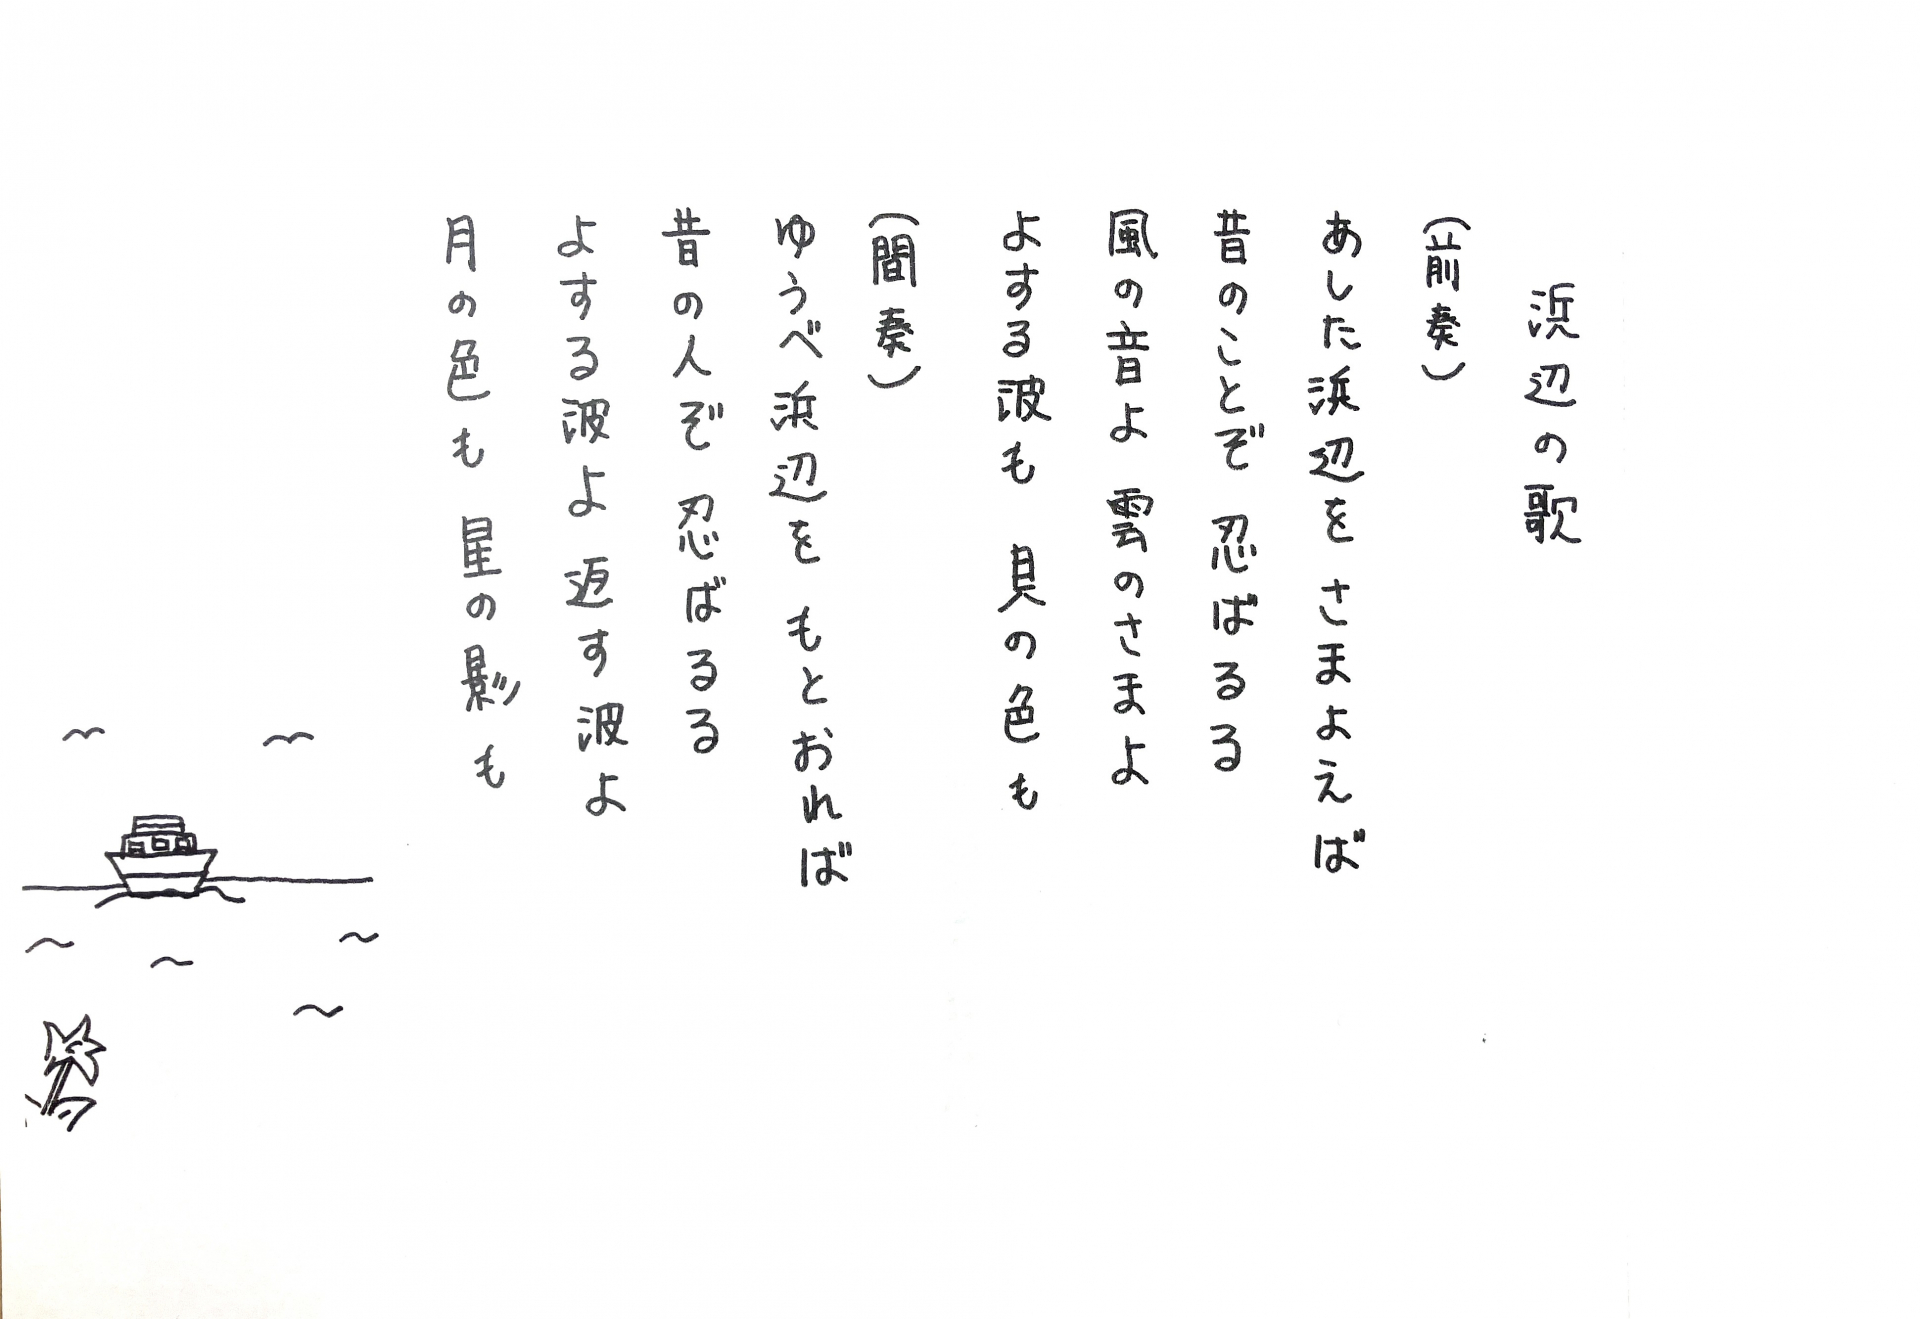 浜辺の歌
（前奏）
あした浜辺を さまよえば
昔のことぞ 忍ばるる
風の音よ 雲のさまよ
よする波も 貝の色も
（間奏）
ゆうべ浜辺を もとおれば
昔の人ぞ 忍ばるる
よする波よ 返す波よ
月の色も 星の影も